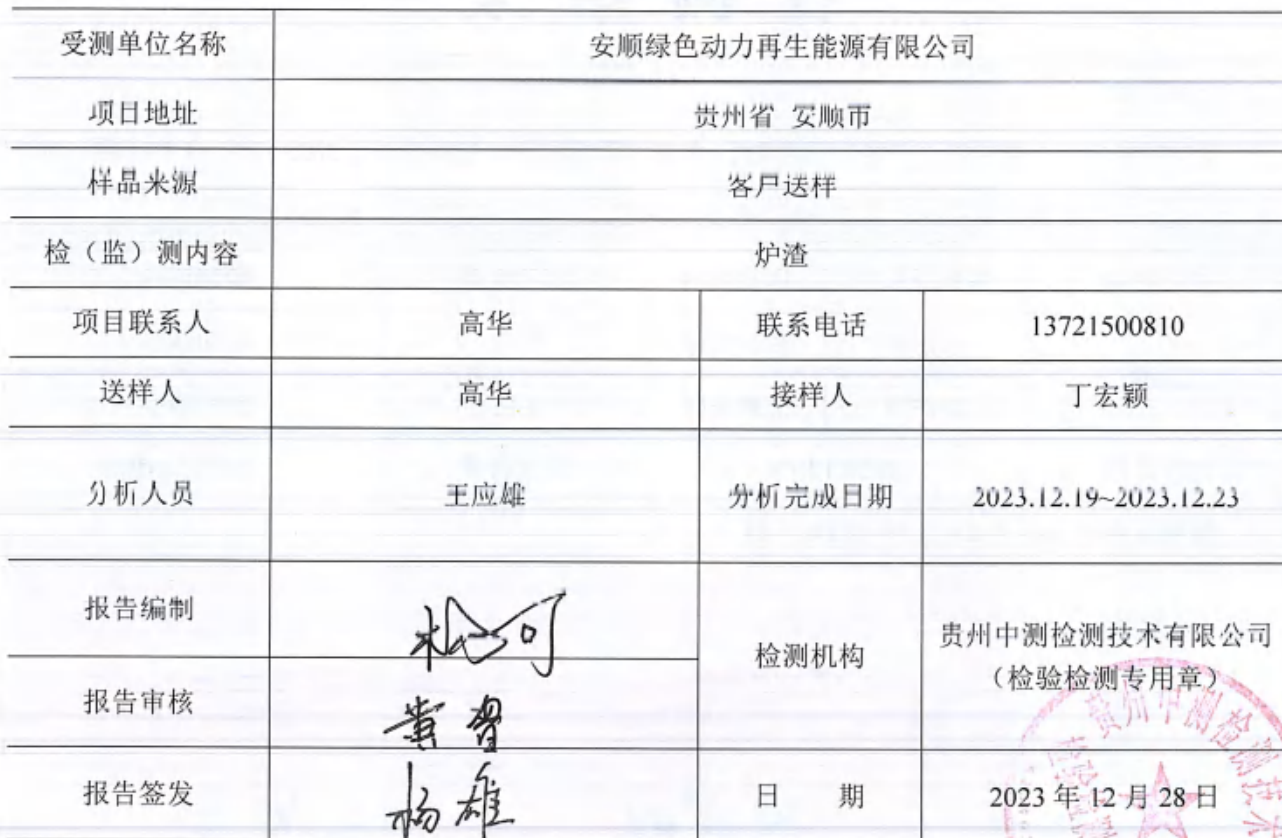 受测单位名称 安顺绿色动力再生能源有限公司
项目地址 贵州省 安顺市
样品来源 客户送样
检（监）测内容 炉渣
项目联系人 高华 联系电话 13721500810
送样人 高华 接样人 丁宏颖
分析人员 王应雄 分析完成日期 2023.12.19~2023.12.23
报告编制
检测机构 贵州中测检测技术有限公司
（检验检测专用章）
报告审核 黄智
报告签发 杨雄 日 期 2023 年 12 月 28 日